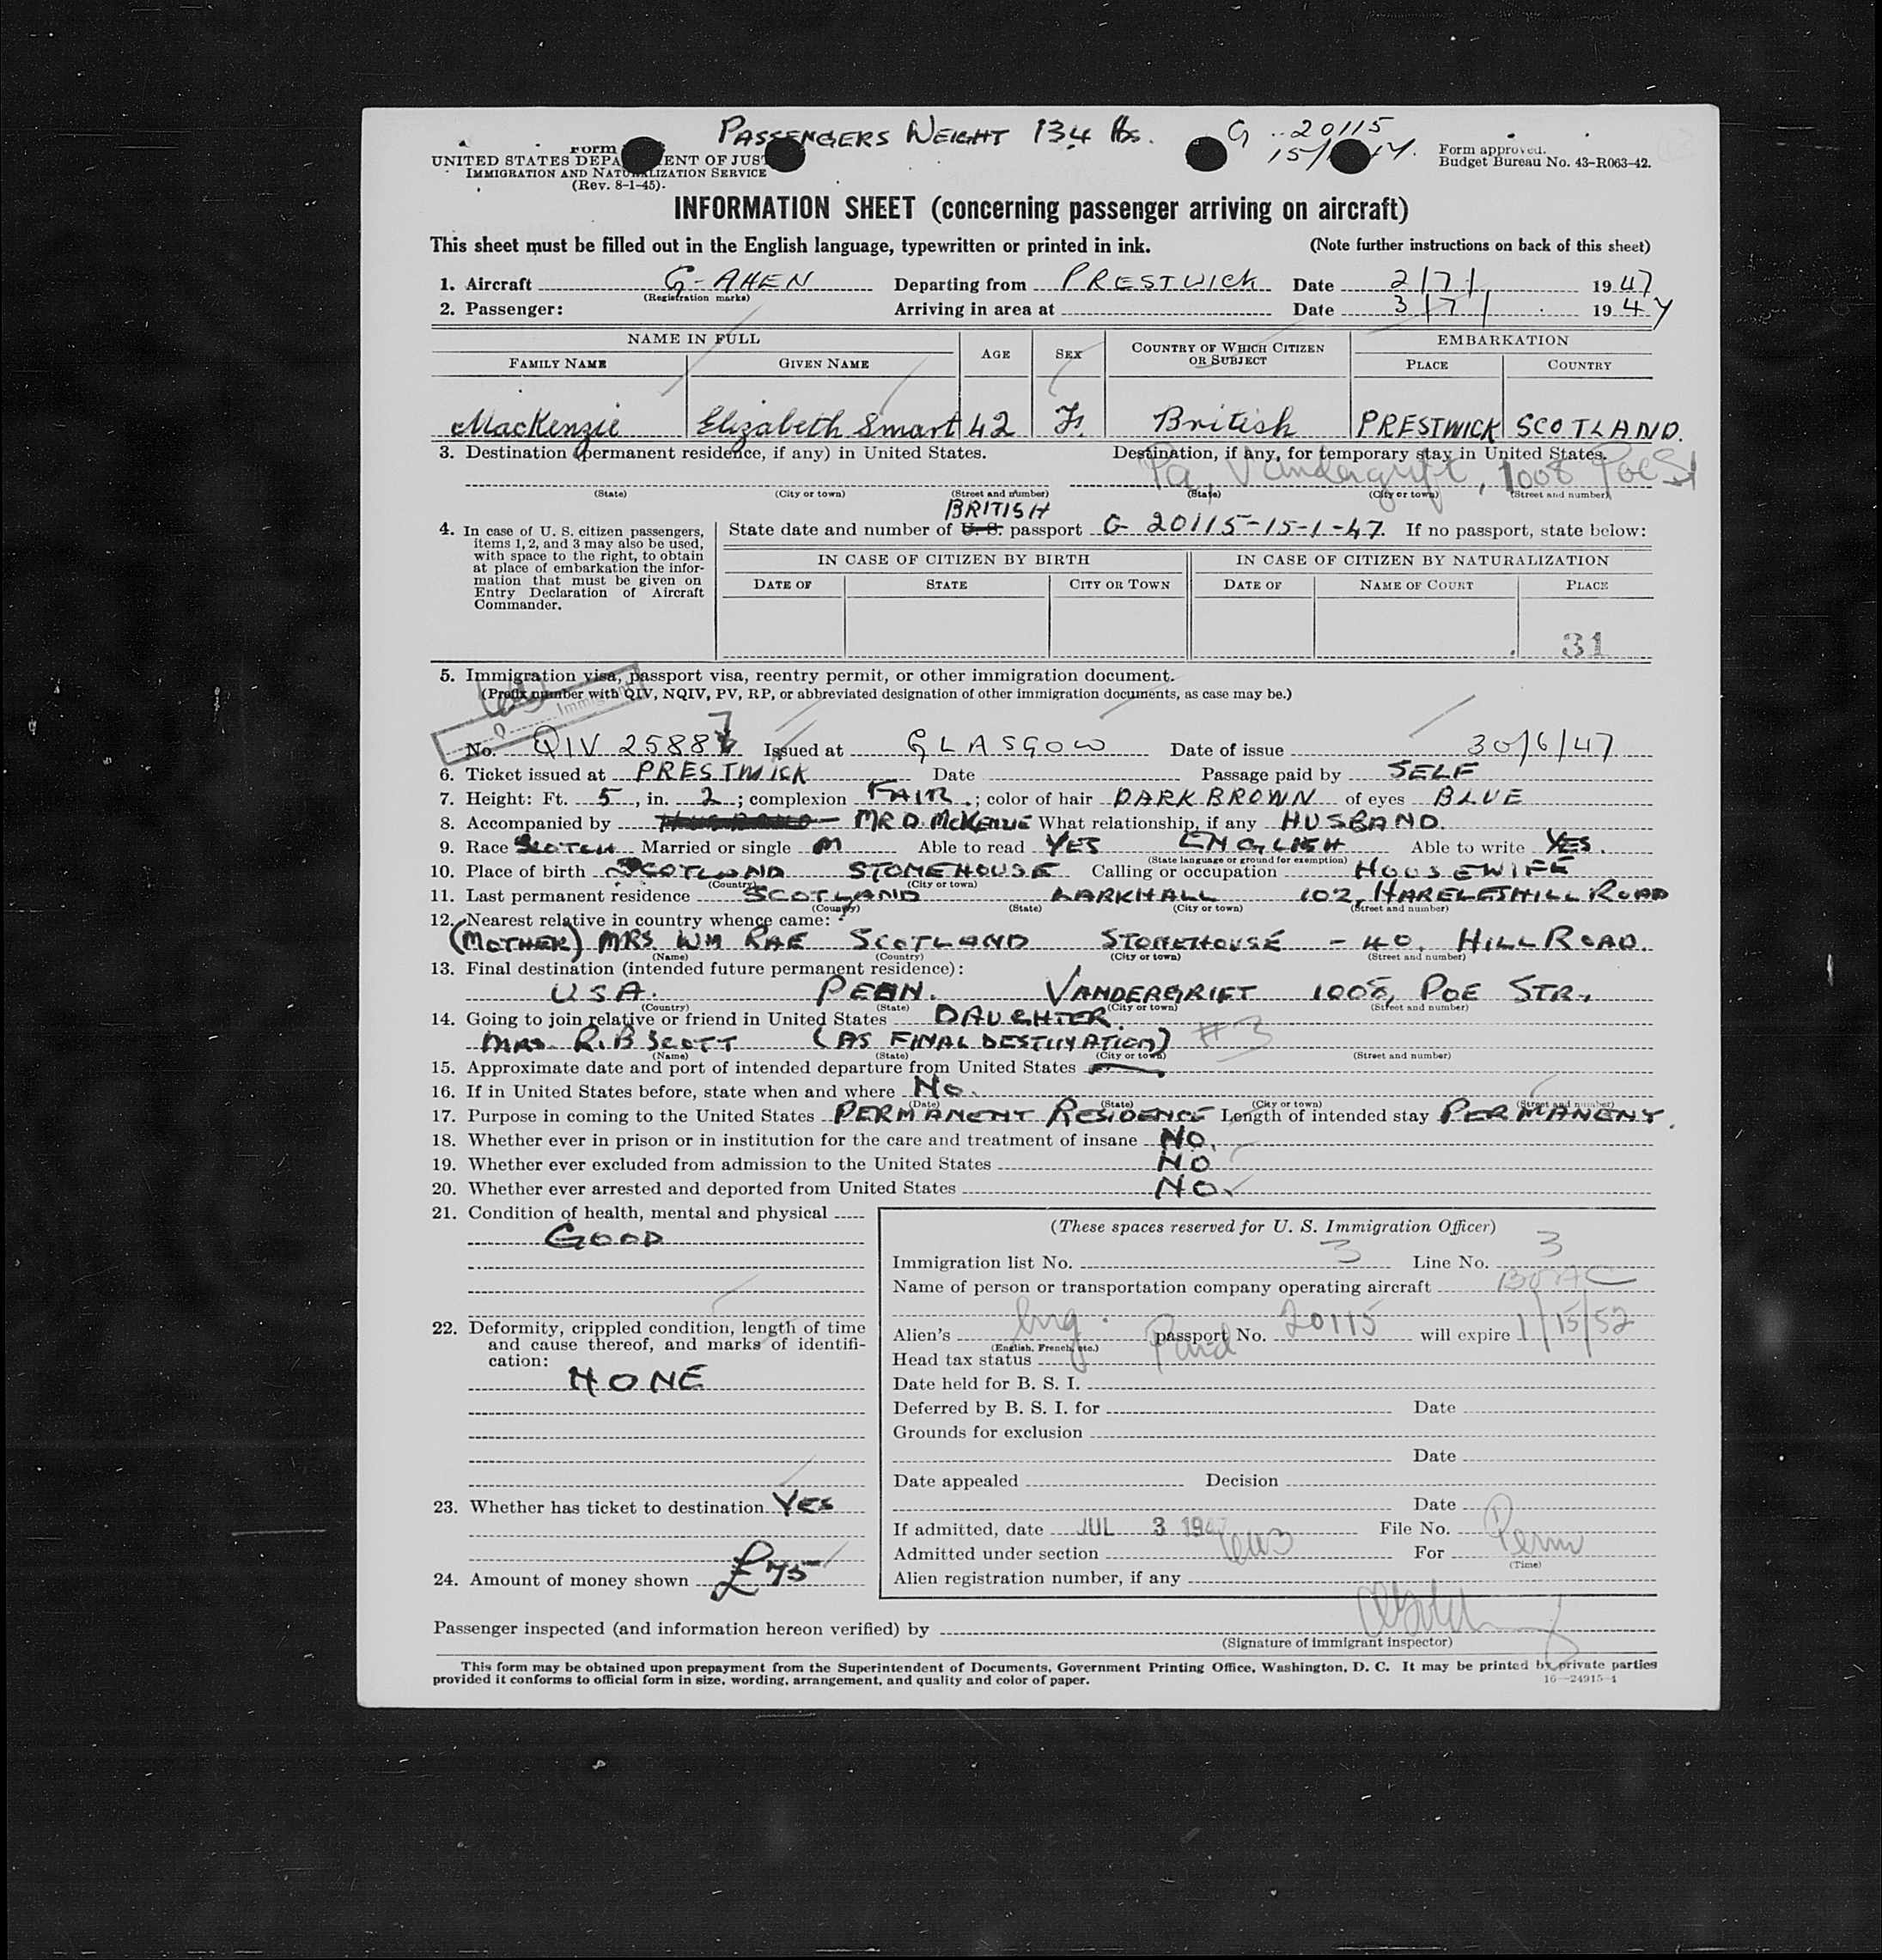 PASSENGERS WEIGHT 134 lbs. G 20115
Form
UNITED STATES DEPA ENT OF JUS
IMMIGRATION AND NATURALIZATION SERVICE
(Rev. 8-1-45).
Form approved.
Budget Bureau No. 43-R063-42.
INFORMATION SHEET (concerning passenger arriving on aircraft)
This sheet must be filled out in the English language, typewritten or printed in ink. (Note further instructions on back of this sheet)
1. Aircraft G-AHEN Departing from PRESTWICK Date 2/7/ 1947
(Registration marks)
2. Passenger: Arriving in area at Date 3/7/ 1947
NAME IN FULL AGE SEX COUNTRY OF WHICH CITIZEN OR SUBJECT EMBARKATION
FAMILY NAME GIVEN NAME PLACE COUNTRY
MacKenzie Elizabeth Smart 42 F. British PRESTWICK SCOTLAND.
3. Destination (permanent residence, if any) in United States. Destination, if any, for temporary stay in United States.
Pa, Vandergrift, 1008 Poe St
(State) (City or town) (Street and number) (State) (City or town) (Street and number)
BRITISH
4. In case of U. S. citizen passengers, items 1, 2, and 3 may also be used, with space to the right, to obtain at place of embarkation the information that must be given on Entry Declaration of Aircraft Commander.
State date and number of U. S. passport G 20115-15-1-47. If no passport, state below:
IN CASE OF CITIZEN BY BIRTH IN CASE OF CITIZEN BY NATURALIZATION
DATE OF STATE CITY OR TOWN DATE OF NAME OF COURT PLACE
31
5. Immigration visa, passport visa, reentry permit, or other immigration document.
(Prefix number with QIV, NQIV, PV, RP, or abbreviated designation of other immigration documents, as case may be.)
No. QIV 25887 Issued at GLASGOW Date of issue 30/6/47
6. Ticket issued at PRESTWICK Date Passage paid by SELF
7. Height: Ft. 5, in. 2; complexion FAIR.; color of hair DARK BROWN of eyes BLUE
8. Accompanied by MR D. McKENZIE What relationship, if any HUSBAND.
9. Race SCOTCH Married or single M Able to read YES ENGLISH Able to write YES.
(State language or ground for exemption)
10. Place of birth SCOTLAND STONEHOUSE Calling or occupation HOUSEWIFE
(Country) (City or town)
11. Last permanent residence SCOTLAND LARKHALL 102, HARELESHILL ROAD
(Country) (State) (City or town) (Street and number)
12. Nearest relative in country whence came:
(MOTHER) MRS. WM RAE SCOTLAND STONEHOUSE - 40, HILL ROAD.
(Name) (Country) (City or town) (Street and number)
13. Final destination (intended future permanent residence):
USA. PENN. VANDERGRIFT 1008, POE STR.,
(Country) (State) (City or town) (Street and number)
14. Going to join relative or friend in United States DAUGHTER.
MRS. R.B SCOTT (AS FINAL DESTINATION) #3
(Name) (State) (City or town) (Street and number)
15. Approximate date and port of intended departure from United States
16. If in United States before, state when and where NO.
(Date) (State) (City or town) (Street and number)
17. Purpose in coming to the United States PERMANENT RESIDENCE Length of intended stay PERMANENT.
18. Whether ever in prison or in institution for the care and treatment of insane NO.
19. Whether ever excluded from admission to the United States NO
20. Whether ever arrested and deported from United States NO.
21. Condition of health, mental and physical
GOOD
22. Deformity, crippled condition, length of time
and cause thereof, and marks of identifi-
cation:
NONE
23. Whether has ticket to destination YES
24. Amount of money shown £75
(These spaces reserved for U. S. Immigration Officer)
Immigration list No. 3 Line No. 3
Name of person or transportation company operating aircraft BOAC
Alien's Eng. passport No. 20115 will expire 1/15/52
(English, French, etc.)
Head tax status Paid
Date held for B. S. I.
Deferred by B. S. I. for Date
Grounds for exclusion
Date
Date appealed Decision
Date
If admitted, date JUL 3 194 File No.
Admitted under section For Perm
(Time)
Alien registration number, if any
Passenger inspected (and information hereon verified) by
(Signature of immigrant inspector)
This form may be obtained upon prepayment from the Superintendent of Documents, Government Printing Office, Washington, D. C. It may be printed by private parties
provided it conforms to official form in size, wording, arrangement, and quality and color of paper. 16-24915-1